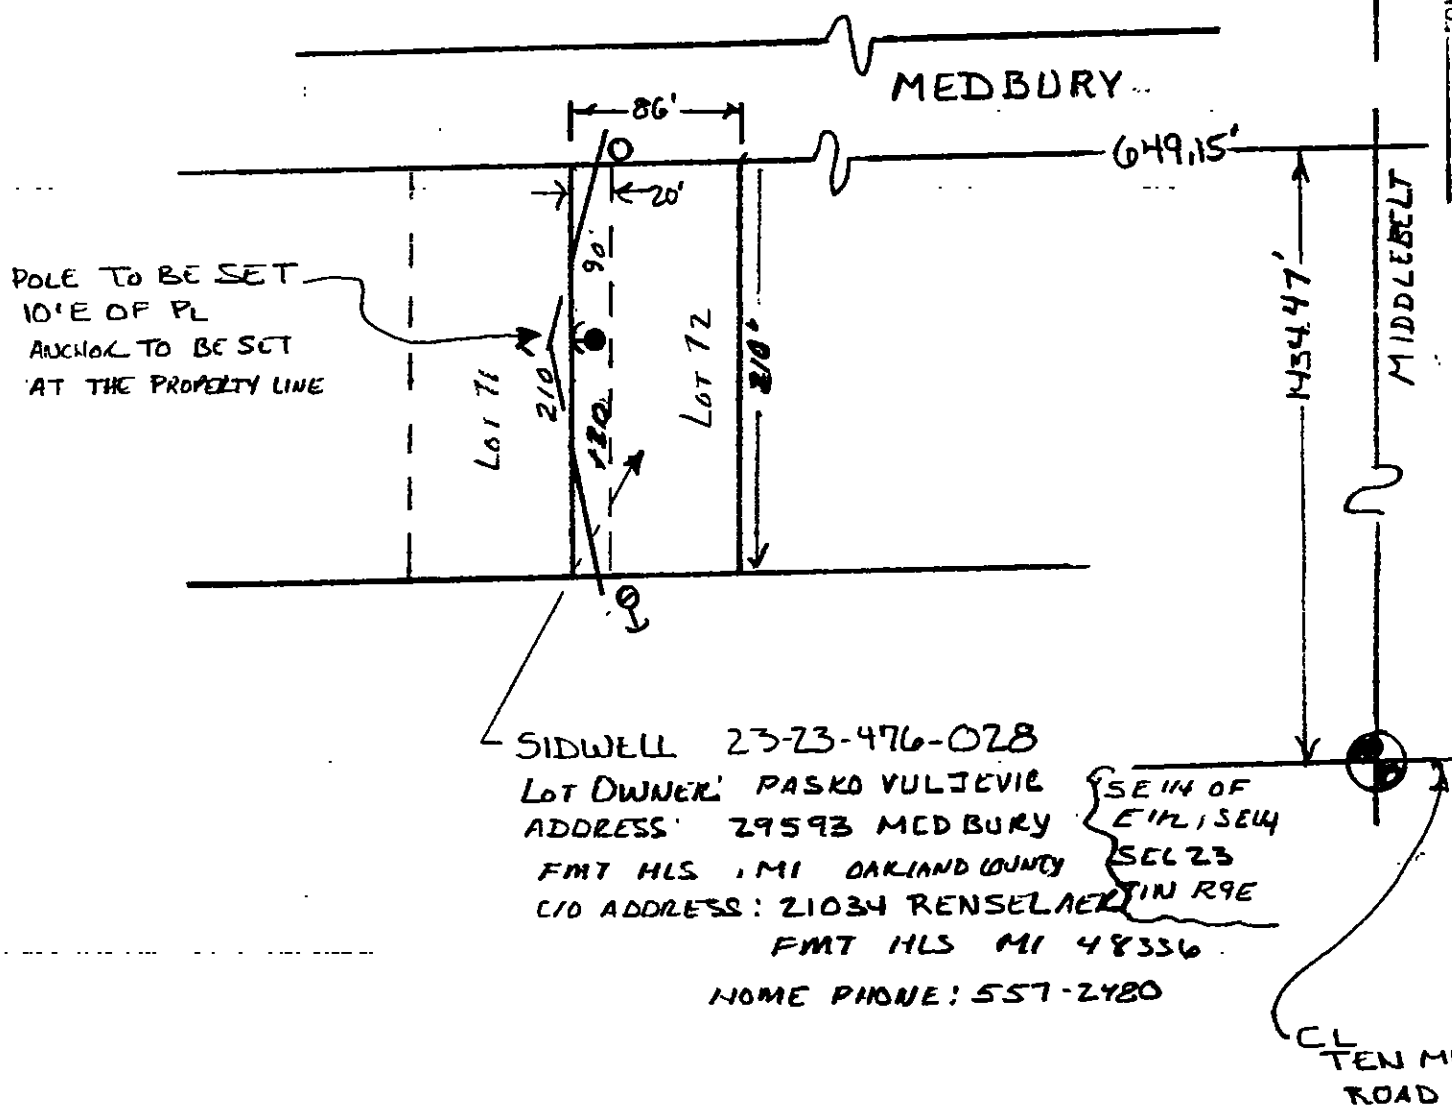 MEDBURY
86'
649.15'
20'
MIDDLEBELT
1434.47'
90'
POLE TO BE SET
10'E OF PL
ANCHOR TO BE SET
AT THE PROPERTY LINE
LOT 71
210
120
LOT 72
210'
SIDWELL 23-23-476-028
LOT OWNER: PASKO VULJEVIC
ADDRESS: 29593 MEDBURY
FMT HLS, MI OAKLAND COUNTY
C/O ADDRESS: 21034 RENSELAER
FMT HLS MI 48336
HOME PHONE: 557-2480
SE 1/4 OF
E 1/2, SE 1/4
SEC 23
T1N R9E
CL
TEN
ROAD